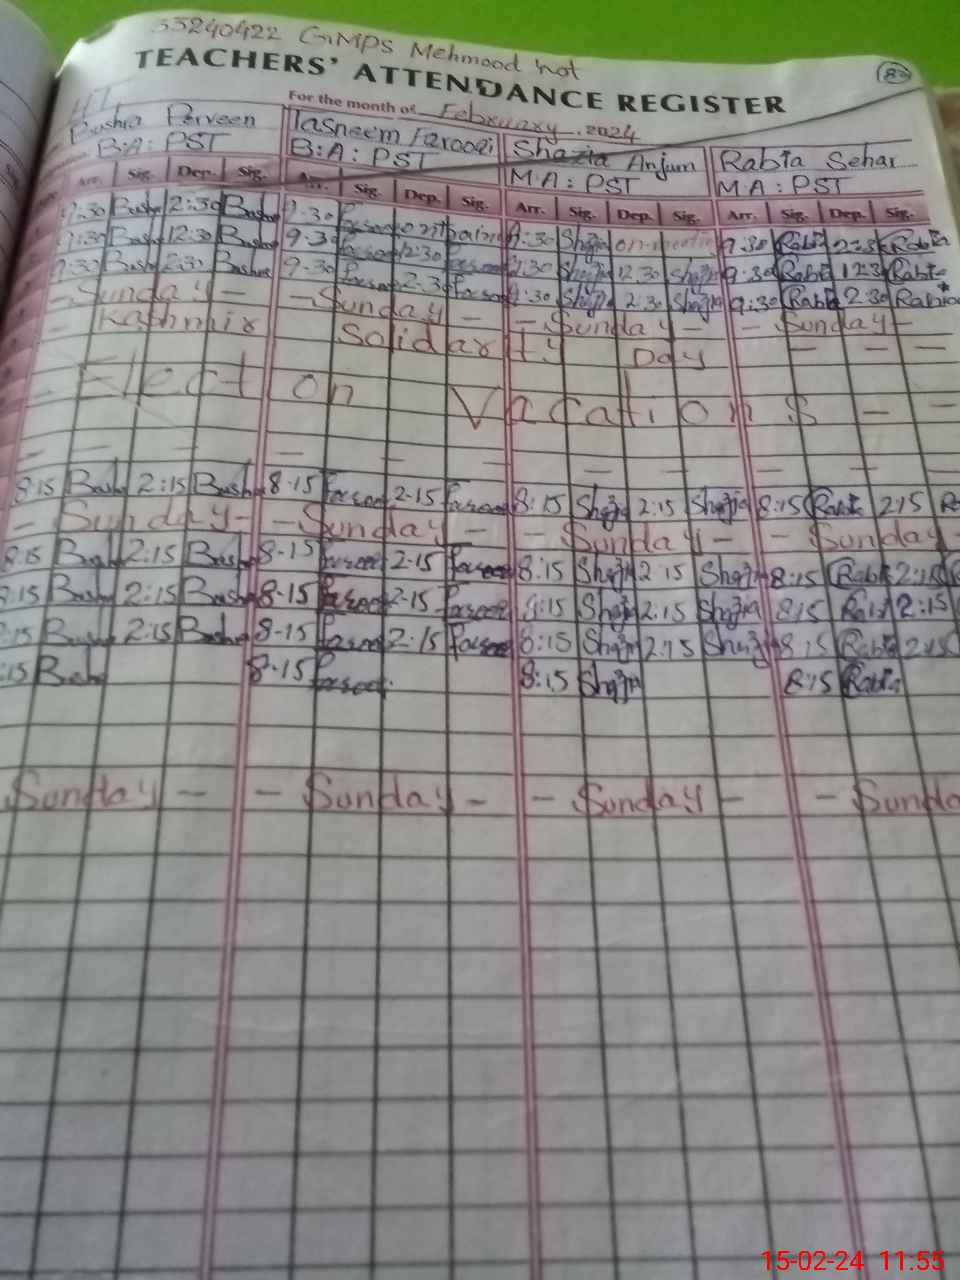 33240422 GMPS Mehmood kot
TEACHERS' ATTENDANCE REGISTER
For the month of February, 2024
HT
Bushra Perveen Tasneem Farooqi Shazia Anjum Rabia Sehar
B:A: PST B:A: PST M.A: PST M.A: PST
Arr. Sig. Dep. Sig. Arr. Sig. Dep. Sig. Arr. Sig. Dep. Sig. Arr. Sig. Dep. Sig.
9:30 Bushra 2:30 Bushra 9-30 9:30 Shazia 9:30 Rabia 2:30 Rabia
9:30 Bushra 12:30 Bushra 9-30 12:30 9:30 Shazia 12:30 Shazia 9:30 Rabia 12:30 Rabia
9:30 Bushra 2:30 Bushra 9-30 2-30 9:30 Shazia 2:30 Shazia 9:30 Rabia 2:30 Rabia
- Sunday - - Sunday - - Sunday - - Sunday -
- Kashmir Solidarity Day - - -
- Election Vacations - -
8:15 Bushra 2:15 Bushra 8-15 2-15 8:15 Shazia 2:15 Shazia 8:15 Rabia 2:15
- Sunday - - Sunday - - Sunday - - Sunday -
8:15 Bushra 2:15 Bushra 8-15 2-15 8:15 Shazia 2:15 Shazia 8:15 Rabia 2:15
8:15 Bushra 2:15 Bushra 8-15 2-15 8:15 Shazia 2:15 Shazia 8:15 Rabia 2:15
:15 Bushra 2:15 Bushra 8-15 2-15 8:15 Shazia 2:15 Shazia 8:15 Rabia 2:15
:15 8-15 8:15 Shazia 8:15 Rabia
Sunday - - Sunday - - Sunday - - Sunda
15-02-24 11:55